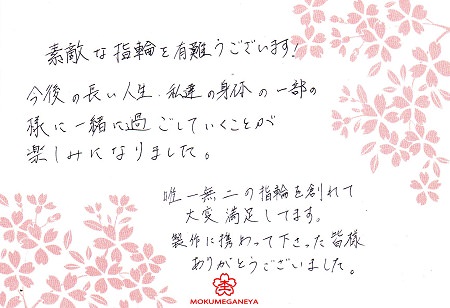 素敵な指輪を有難うございます!
今後の長い人生、私達の身体の一部の
様に一緒に過ごしていくことが
楽しみになりました。
唯一無二の指輪を創れて
大変満足してます。
製作に携わって下さった皆様
ありがとうございました。
MOKUMEGANEYA